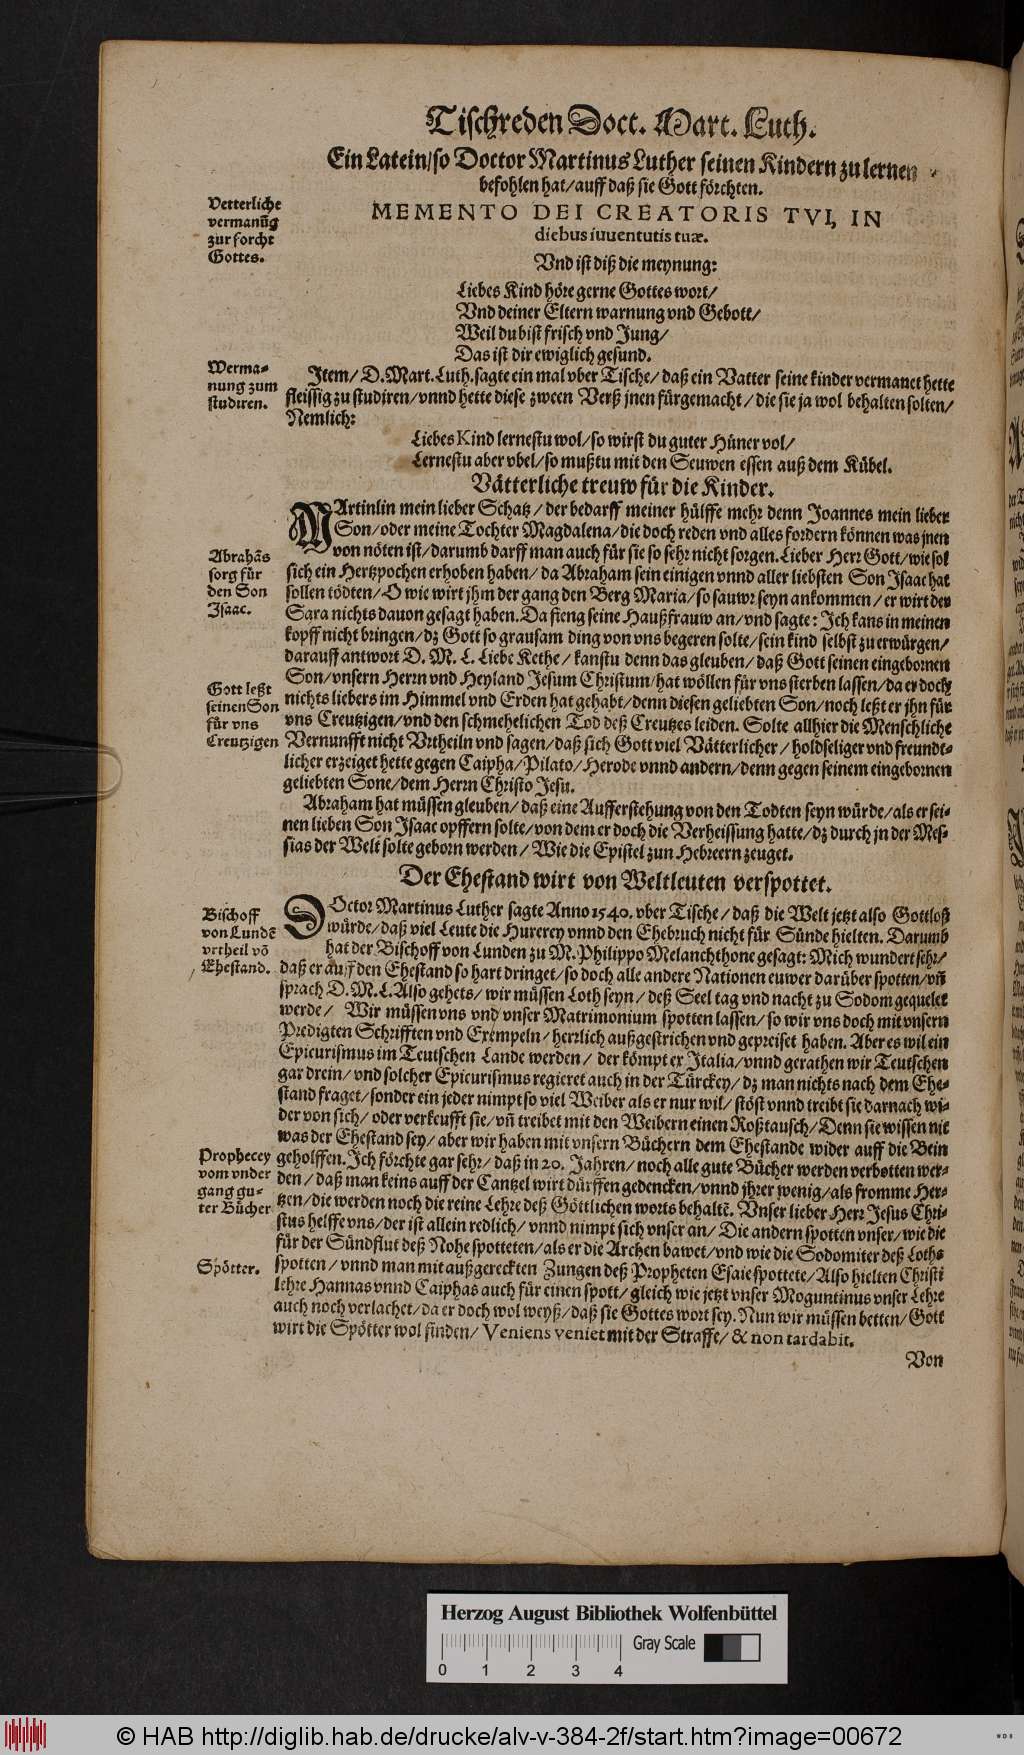 Tischreden Doct. Mart. Luth.
Ein Latein/so Doctor Martinus Luther seinen Kindern zu lernen
befohlen hat/auff daß sie Gott förchten.
Vetterliche
vermanūg
zur forcht
Gottes.
MEMENTO DEI CREATORIS TVI, IN
diebus iuuentutis tuæ.
Vnd ist diß die meynung:
Liebes Kind höre gerne Gottes wort/
Vnd deiner Eltern warnung vnd Gebott/
Weil du bist frisch vnd Jung/
Das ist dir ewiglich gesund.
Werma-
nung zum
studiren.
Item/ D. Mart. Luth. sagte ein mal vber Tische/ daß ein Vatter seine kinder vermanet hette
fleissig zu studiren/vnnd hette diese zween Verß jnen fürgemacht/ die sie ja wol behalten solten/
Nemlich:
Liebes Kind lernestu wol/so wirst du guter Hüner vol/
Lernestu aber vbel/so mußtu mit den Seuwen essen auß dem Kübel.
Vätterliche treuw für die Kinder.
MArtinlin mein lieber Schatz/ der bedarff meiner hülffe mehr denn Joannes mein lieber
Son/oder meine Tochter Magdalena/die doch reden vnd alles fordern können was jnen
von nöten ist/darumb darff man auch für sie so sehr nicht sorgen. Lieber Herr Gott/wie sol
Abrahās
sorg für
den Son
Isaac.
sich ein Hertzpochen erhoben haben/ da Abraham sein einigen vnnd aller liebsten Son Isaac hat
sollen tödten/O wie wirt jhm der gang den Berg Maria/so sauwr seyn ankommen/ er wirt der
Sara nichts dauon gesagt haben. Da fieng seine Haußfrauw an/vnd sagte: Ich kans in meinen
kopff nicht bringen/dz Gott so grausam ding von vns begeren solte/sein kind selbst zu erwürgen/
darauff antwort D. M. L. Liebe Kethe/ kanstu denn das gleuben/ daß Gott seinen eingebornen
Son/vnsern Herrn vnd Heyland Jesum Christum/hat wöllen für vns sterben lassen/da er doch
Gott leßt
seinen Son
für vns
Creutzigen
nichts liebers im Himmel vnd Erden hat gehabt/denn diesen geliebten Son/noch leßt er jhn für
vns Creutzigen/vnd den schmehelichen Tod deß Creutzes leiden. Solte allhier die Menschliche
Vernunfft nicht Vrtheiln vnd sagen/daß sich Gott viel Vätterlicher/ holdseliger vnd freundt-
licher erzeiget hette gegen Caipha/Pilato/Herode vnnd andern/denn gegen seinem eingebornen
geliebten Sone/dem Herrn Christo Jesu.
Abraham hat müssen gleuben/ daß eine Aufferstehung von den Todten seyn würde/als er sei-
nen lieben Son Isaac opffern solte/von dem er doch die Verheissung hatte/dz durch jn der Mes-
sias der Welt solte geborn werden/ Wie die Epistel zun Hebreern zeuget.
Der Ehestand wirt von Weltleuten verspottet.
Bischoff
von Lundē
vrtheil vō
Ehestand.
DOctor Martinus Luther sagte Anno 1540. vber Tische/ daß die Welt jetzt also Gottloß
würde/daß viel Leute die Hurerey vnnd den Ehebruch nicht für Sünde hielten. Darumb
hat der Bischoff von Lunden zu M. Philippo Melanchthone gesagt: Mich wundert sehr/
daß er auff den Ehestand so hart dringet/so doch alle andere Nationen euwer darüber spotten/vñ
sprach D. M. L. Also gehets/ wir müssen Loth seyn/ deß Seel tag vnd nacht zu Sodom gequelet
werde/ Wir müssen vns vnd vnser Matrimonium spotten lassen/ so wir vns doch mit vnsern
Predigten Schrifften vnd Exempeln/ herrlich außgestrichen vnd gepreiset haben. Aber es wil ein
Epicurismus im Teutschen Lande werden/ der kömpt er Italia/vnnd gerathen wir Teutschen
gar drein/ vnd solcher Epicurismus regieret auch in der Türckey/ dz man nichts nach dem Ehe-
stand fraget/sonder ein jeder nimpt so viel Weiber als er nur wil/ stöst vnnd treibt sie darnach wi-
der von sich/ oder verkeufft sie/ vñ treibet mit den Weibern einen Roßtausch/Denn sie wissen nit
was der Ehestand sey/ aber wir haben mit vnsern Büchern dem Ehestande wider auff die Bein
Prophecey
vom vnder
gang gu-
ter Bücher
geholffen. Ich förchte gar sehr/ daß in 20. Jahren/ noch alle gute Bücher werden verbotten wer-
den/ daß man keins auff der Cantzel wirt dürffen gedencken/vnnd jhrer wenig/als fromme Her-
tzen/die werden noch die reine Lehre deß Göttlichen worts behaltē. Vnser lieber Herr Jesus Chri-
stus helffe vns/der ist allein redlich/ vnnd nimpt sich vnser an/ Die andern spotten vnser/wie die
für der Sündflut deß Nohe spotteten/als er die Archen bawet/vnd wie die Sodomiter deß Loths
Spötter.
spotten/ vnnd man mit außgereckten Zungen deß Propheten Esaie spottete/Also hielten Christi
lehre Hannas vnnd Caiphas auch für einen spott/ gleich wie jetzt vnser Moguntinus vnser Lehre
auch noch verlachet/da er doch wol weyß/daß sie Gottes wort sey. Nun wir müssen betten/Gott
wirt die Spötter wol finden/ Veniens veniet mit der Straffe/ & non tardabit.
Von
Herzog August Bibliothek Wolfenbüttel
Gray Scale
0 1 2 3 4
© HAB http://diglib.hab.de/drucke/alv-v-384-2f/start.htm?image=00672